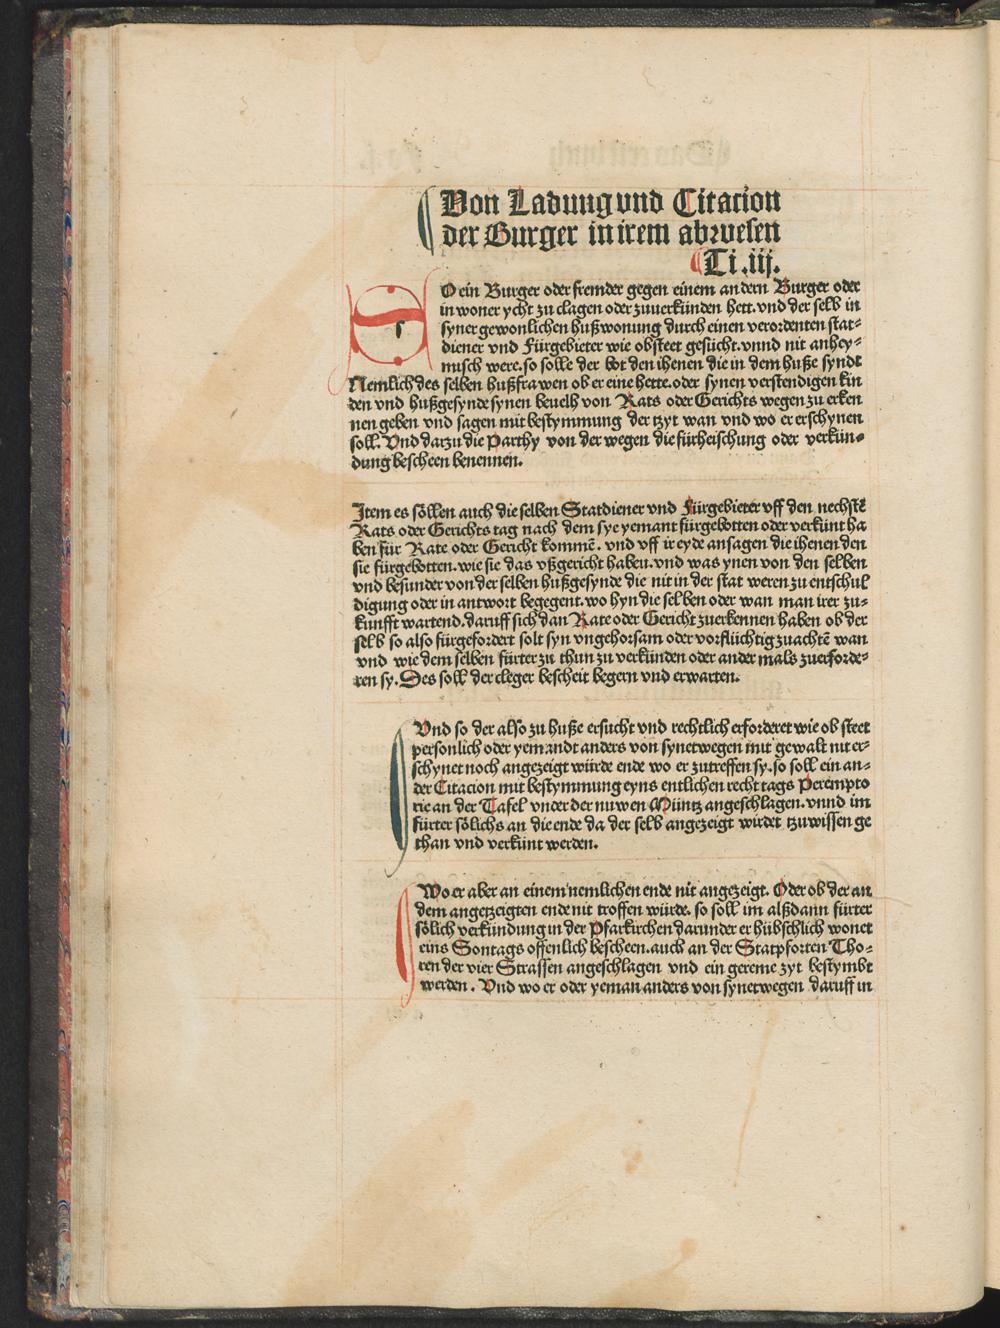 Von Ladung vnd Citacion
der Burger in irem abwesen
Ti .iij.
SO ein Burger oder fremder gegen einem andern Burger oder
in woner ycht zu clagen oder zuuerkünden hett. vnd der selb in
syner gewonlichen hußwonung durch einen verordenten stat-
diener vnd Fürgebieter wie obsteet gesücht. vnnd nit anhey-
misch were. so solle der bot den ihenen die in dem huße syndt
Nemlich des selben hußfrawen ob er eine hette. oder synen verstendigen kin
den vnd hußgesynde synen beuelh von Rats oder Gerichts wegen zu erken
nen geben vnd sagen mit bestymmung der tzyt wan vnd wo er erschynen
soll. Vnd darzu die Parthy von der wegen die fürheischung oder verkün-
dung bescheen benennen.
Item es söllen auch die selben Statdiener vnd Fürgebieter vff den nechstē
Rats oder Gerichts tag nach dem sye yemant fürgebotten oder verkünt ha
ben für Rate oder Gericht kommē. vnd vff ir eyde ansagen die ihenen den
sie fürgebotten. wie sie das vßgericht haben. vnd was ynen von den selben
vnd besunder von der selben hußgesynde die nit in der stat weren zu entschul
digung oder in antwort begegent. wo hyn die selben oder wan man irer zu-
kunfft wartend. daruff sich dan Rate oder Gericht zuerkennen haben ob der
selb so also fürgefordert solt syn vngehorsam oder vorflüchtig zuachtē wan
vnd wie dem selben fürter zu thun zu verkünden oder ander mals zuerforde-
ren sy. Des soll der cleger bescheit begern vnd erwarten.
Vnd so der also zu huße ersucht vnd rechtlich erforderet wie ob steet
personlich oder yemandt anders von synetwegen mit gewalt nit er-
schynet noch angezeigt würde ende wo er zutreffen sy. so soll ein an-
der Citacion mit bestymmung eyns entlichen recht tags Perempto
rie an der Tafel vnder der nuwen Müntz angeschlagen. vnnd im
fürter sölichs an die ende da der selb angezeigt wirdet tzuwissen ge
than vnd verkünt werden.
Wo er aber an einem nemlichen ende nit angezeigt. Oder ob der an
dem angetzeigten ende nit troffen würde. so soll im alßdann fürter
sölich verkündung in der Pfarkirchen darunder er hübschlich wonet
eins Sontags offenlich bescheen. auch an der Statpforten Tho-
ren der vier Strassen angeschlagen vnd ein gereme zyt bestymbt
werden. Vnd wo er oder yeman anders von synetwegen daruff in